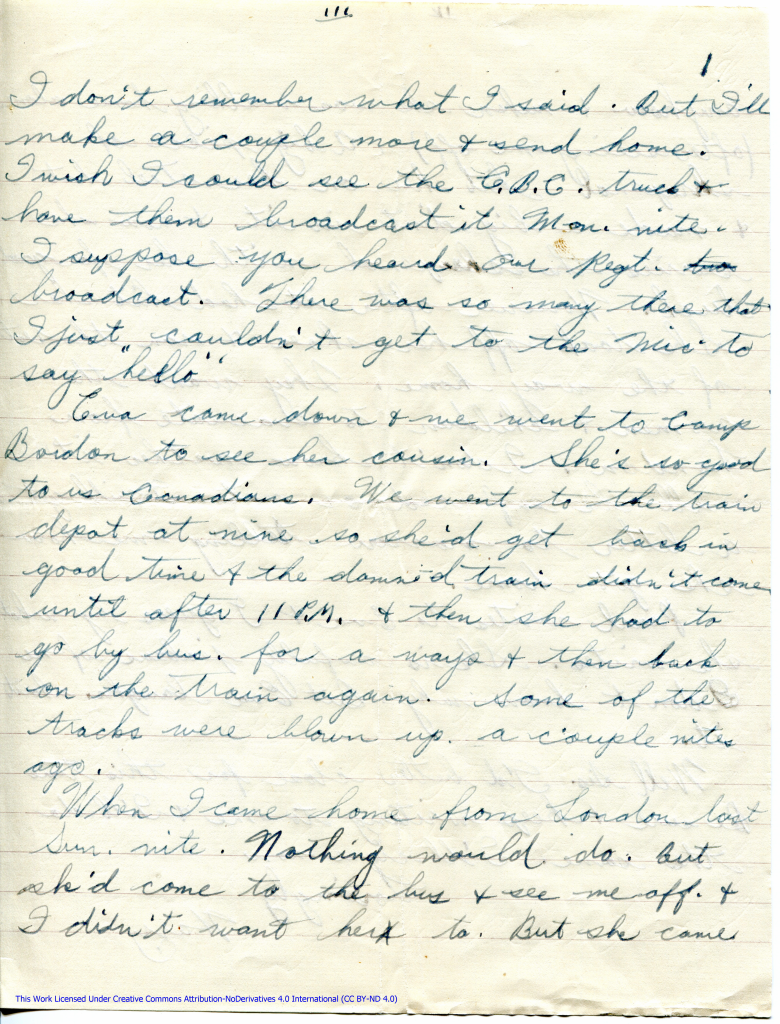 III
1
I don't remember what I said. But I'll
make a couple more & send home.
I wish I could see the C.B.C. truck &
have them broadcast it Mon. nite.
I suppose you heard our Regt.
broadcast. There was so many there that
I just couldn't get to the Mic. to
say "hello"
Eva came down & we went to Camp
Bordon to see her cousin. She's so good
to us Canadians. We went to the train
depot at nine so she'd get back in
good time & the damned train didn't come
until after 11 P.M. & then she had to
go by bus. for a ways & then back
on the train again. Some of the
tracks were blown up. a couple nites
ago.
When I came home from London last
Sun. nite. Nothing would do. But
she'd come to the bus & see me off. &
I didn't want her to. But she came
This Work Licensed Under Creative Commons Attribution-NoDerivatives 4.0 International (CC BY-ND 4.0)